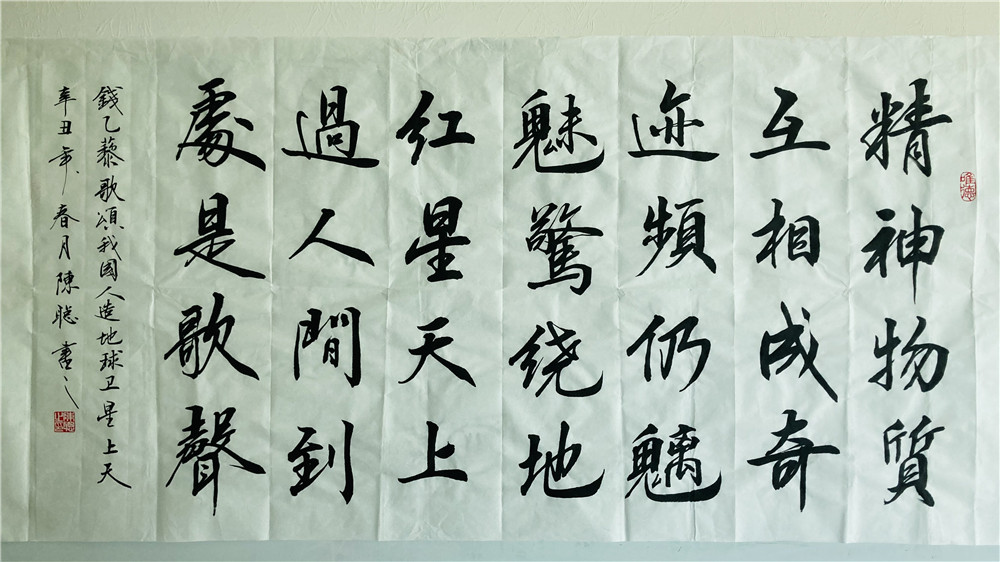 唯德
精神物質
互相成奇
迹頻仍魑
魅驚绕地
红星天上
過人間到
處是歌聲
錢乙藜歌頌我國人造地球卫星上天
辛丑年春月陳聪書之